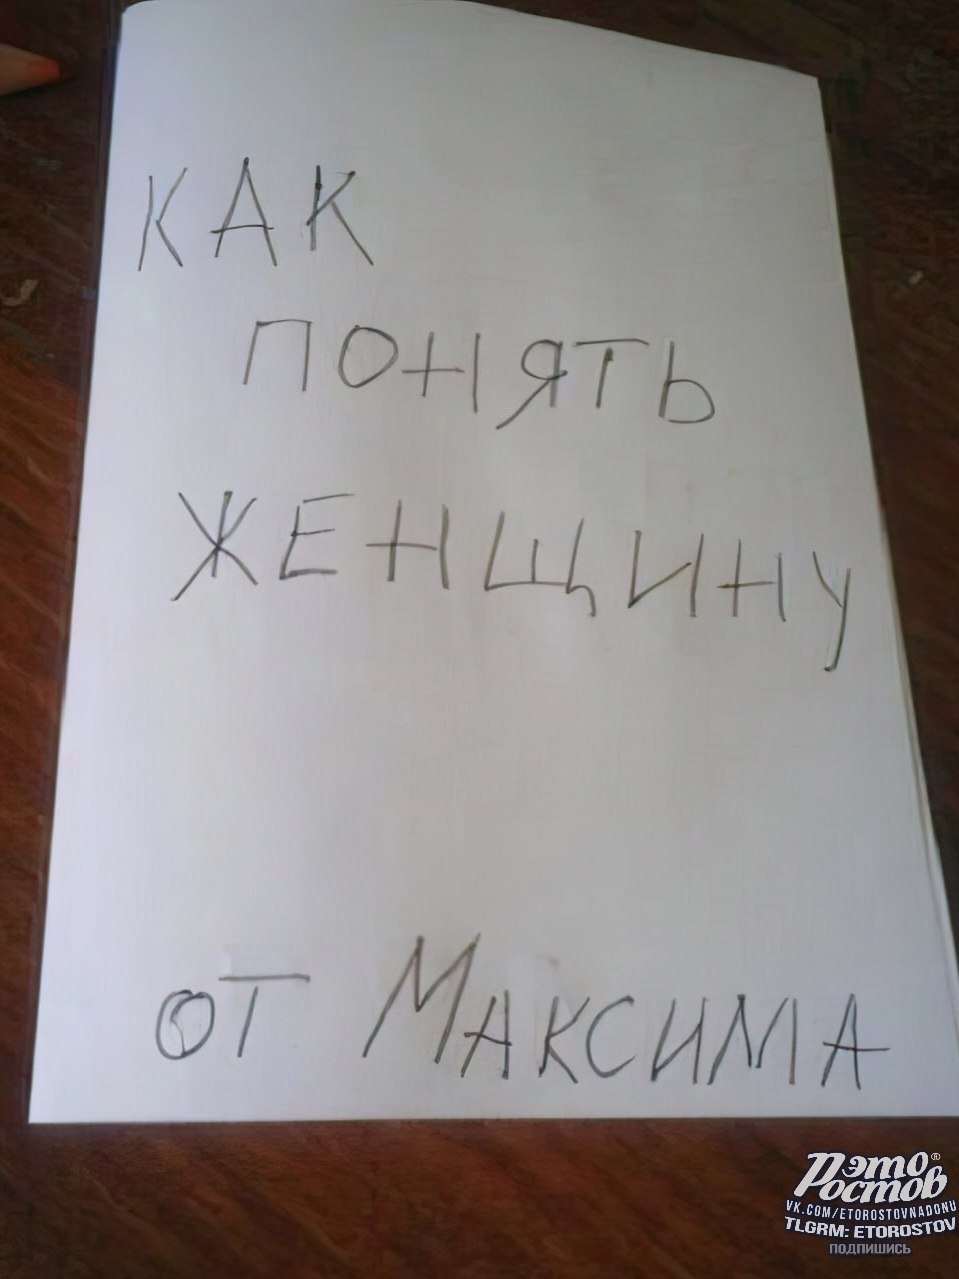 КАК
ПОНЯТЬ
ЖЕНЩИНУ
ОТ МАКСИМА
Это
Ростов®
VK.COM/ETOROSTOVNADONU
TLGRM: ETOROSTOV
ПОДПИШИСЬ